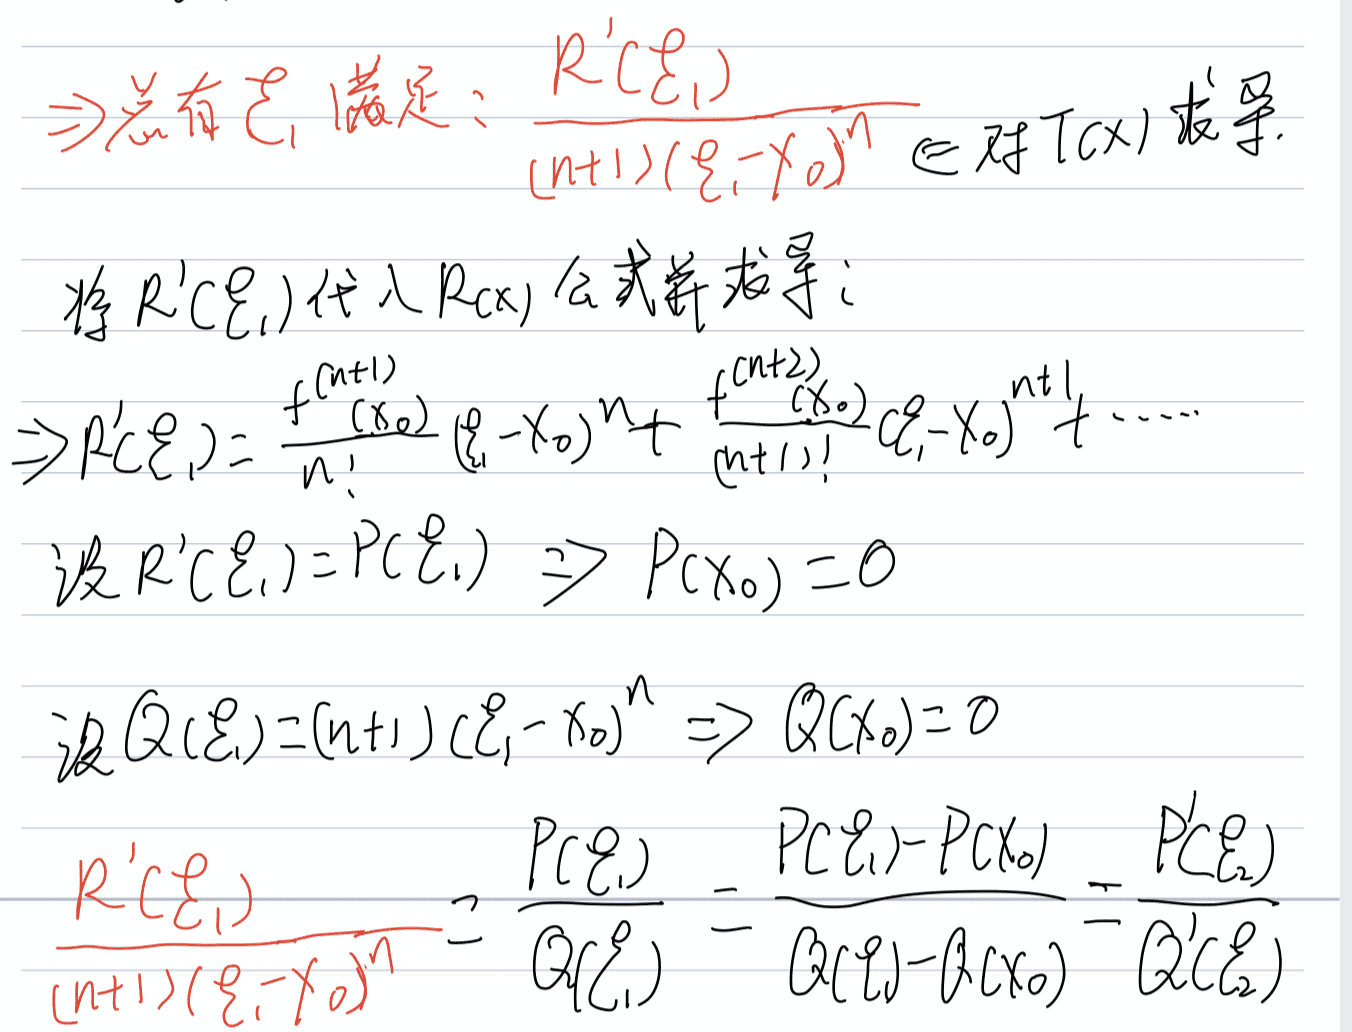 ⇒总有ξ₁满足: R'(ξ₁)/(n+1)(ξ₁-X₀)ⁿ ⇐对T(X)求导.
将R'(ξ₁)代入R(X)公式并求导:
⇒R'(ξ₁)=f⁽ⁿ⁺¹⁾(X₀)/n!(ξ₁-X₀)ⁿ+f⁽ⁿ⁺²⁾(X₀)/(n+1)!(ξ₁-X₀)ⁿ⁺¹+……
设R'(ξ₁)=P(ξ₁) ⇒ P(X₀)=0
设Q(ξ₁)=(n+1)(ξ₁-X₀)ⁿ ⇒ Q(X₀)=0
R'(ξ₁)/(n+1)(ξ₁-X₀)ⁿ = P(ξ₁)/Q(ξ₁) = P(ξ₁)-P(X₀)/Q(ξ₁)-Q(X₀) = P'(ξ₂)/Q'(ξ₂)